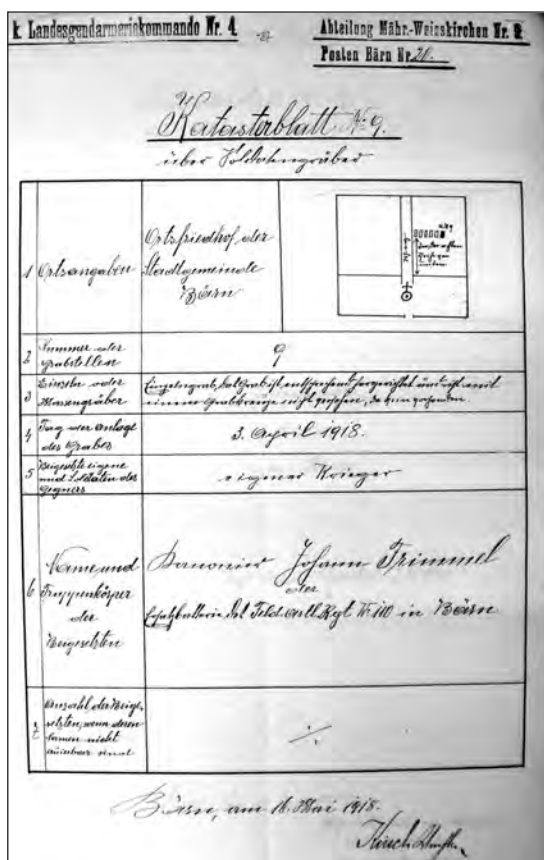 k. Landesgendarmeriekommando Nr. 4.
Abteilung Mähr.-Weisskirchen Nr. 2.
Posten Bärn Nr. 20.
Katasterblatt Nr. 9.
über Soldatengräber
1 Ortsangaben
Ortsfriedhof der
Stadtgemeinde
Bärn
2 Nummer der
Grabstellen
9
3 Einzeln oder
Massengräber
Einzelngrab, das Grab ist entsprechend hergerichtet und ist mit
einem Grabkreuze nicht versehen, da kein
4 Tag der Anlage
des Grabes
3. April 1918.
5 Beigesetzte eigene
und Soldaten des
Gegners
eigener Krieger
6 Name und
Truppenkörper
der
Beigesetzten
Kanonier Johann Trimmel
der
Ersatzbatterie des Feld Artl. Rgt Nr. 110 in Bärn
7 Anzahl der Beige-
setzten, wenn deren
Namen nicht
sind
Bärn, am 16. Mai 1918.